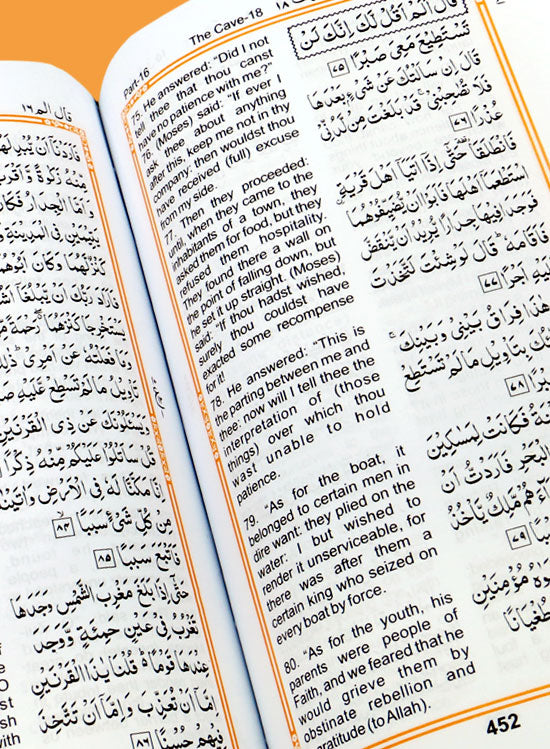 قال الم ١٦
مِنْهُ زَكٰوةً
وَاَمَّا الْجِدَارُ فَكَانَ
يَتِيْمَيْنِ فِى الْمَدِيْنَةِ
كَنْزٌ لَّهُمَا وَكَانَ اَبُوْهُمَا
فَاَرَادَ رَبُّكَ اَنْ يَّبْلُغَآ
يَسْتَخْرِجَا كَنْزَهُمَا رَحْمَةً
وَمَا فَعَلْتُهٗ عَنْ اَمْرِىْ
تَاْوِيْلُ مَا لَمْ تَسْطِعْ عَّلَيْهِ
وَيَسْـَٔلُوْنَكَ عَنْ ذِى الْقَرْنَيْنِ
قُلْ سَاَتْلُوْا عَلَيْكُمْ مِّنْهُ ذِكْرًا
اِنَّا مَكَّنَّا لَهٗ فِى الْاَرْضِ وَاٰتَيْنٰهُ
مِنْ كُلِّ شَىْءٍ سَبَبًا ٨٤
فَاَتْبَعَ سَبَبًا ٨٥
حَتّٰٓى اِذَا بَلَغَ مَغْرِبَ الشَّمْسِ وَجَدَهَا
تَغْرُبُ فِىْ عَيْنٍ حَمِئَةٍ وَّوَجَدَ
عِنْدَهَا قَوْمًا قُلْنَا يٰذَا الْقَرْنَيْنِ
اِمَّآ اَنْ تُعَذِّبَ وَاِمَّآ اَنْ تَتَّخِذَ
فِيْهِمْ حُسْنًا ٨٦
Part-16
The Cave-18
١٨
75. He answered: "Did I not
tell thee that thou canst
have no patience with me?"
76. (Moses) said: "If ever I
ask thee about anything
after this, keep me not in thy
company: then wouldst thou
have received (full) excuse
from my side.
77. Then they proceeded:
until, when they came to the
inhabitants of a town, they
asked them for food, but they
refused them hospitality.
They found there a wall on
the point of falling down, but
he set it up straight. (Moses)
said: "If thou hadst wished,
surely thou couldst have
exacted some recompense
for it!
78. He answered: "This is
the parting between me and
thee: now will I tell thee the
interpretation of (those
things) over which thou
wast unable to hold
patience.
79. "As for the boat, it
belonged to certain men in
dire want: they plied on the
water: I but wished to
render it unserviceable, for
there was after them a
certain king who seized on
every boat by force.
80. "As for the youth, his
parents were people of
Faith, and we feared that he
would grieve them by
obstinate rebellion and
gratitude (to Allah).
قَالَ اَلَمْ اَقُلْ لَّكَ اِنَّكَ لَنْ
تَسْتَطِيْعَ مَعِىَ صَبْرًا ٧٥
قَالَ اِنْ سَاَلْتُكَ عَنْ شَىْءٍۭ بَعْدَهَا
فَلَا تُصٰحِبْنِىْ قَدْ بَلَغْتَ مِنْ لَّدُنِّىْ
عُذْرًا ٧٦
فَانْطَلَقَا حَتّٰٓى اِذَآ اَتَيَآ اَهْلَ قَرْيَةِ
اسْتَطْعَمَآ اَهْلَهَا فَاَبَوْا اَنْ يُّضَيِّفُوْهُمَا
فَوَجَدَا فِيْهَا جِدَارًا يُّرِيْدُ اَنْ يَّنْقَضَّ
فَاَقَامَهٗ قَالَ لَوْ شِئْتَ لَتَّخَذْتَ
عَلَيْهِ اَجْرًا ٧٧
هٰذَا فِرَاقُ بَيْنِىْ وَبَيْنِكَ
بِتَاْوِيْلِ مَا لَمْ تَسْتَطِعْ
٧٨
فَكَانَتْ لِمَسٰكِيْنَ
الْبَحْرِ فَاَرَدْتُّ اَنْ
مَّلِكٌ يَّاْخُذُ
٧٩
مُؤْمِنَيْنِ
طُغْيَانًا
452